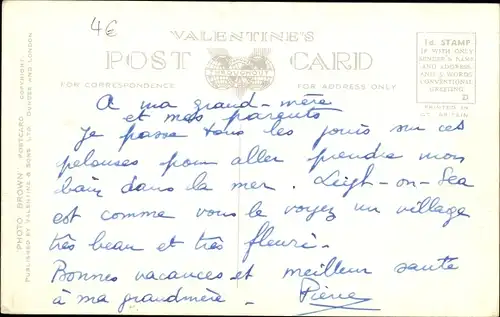 4€
VALENTINE'S
POST CARD
THROUGHOUT
FOR CORRESPONDENCE
FOR ADDRESS ONLY
1d. STAMP
IF WITH ONLY
SENDER'S NAME
AND ADDRESS
AND 5 WORDS
CONVENTIONAL
GREETING
D
PRINTED IN
GT. BRITAIN
"PHOTO BROWN" POSTCARD COPYRIGHT.
PUBLISHED BY VALENTINE & SONS LTD. DUNDEE AND LONDON
A ma grand-mère
et mes parents
Je passe tous les jours sur ces
pelouses pour aller prendre mon
bain dans la mer. Leigh-on-Sea
est comme vous le voyez un village
très beau et très fleuri.
Bonnes vacances et meilleur santé
à ma grandmère. Pierre